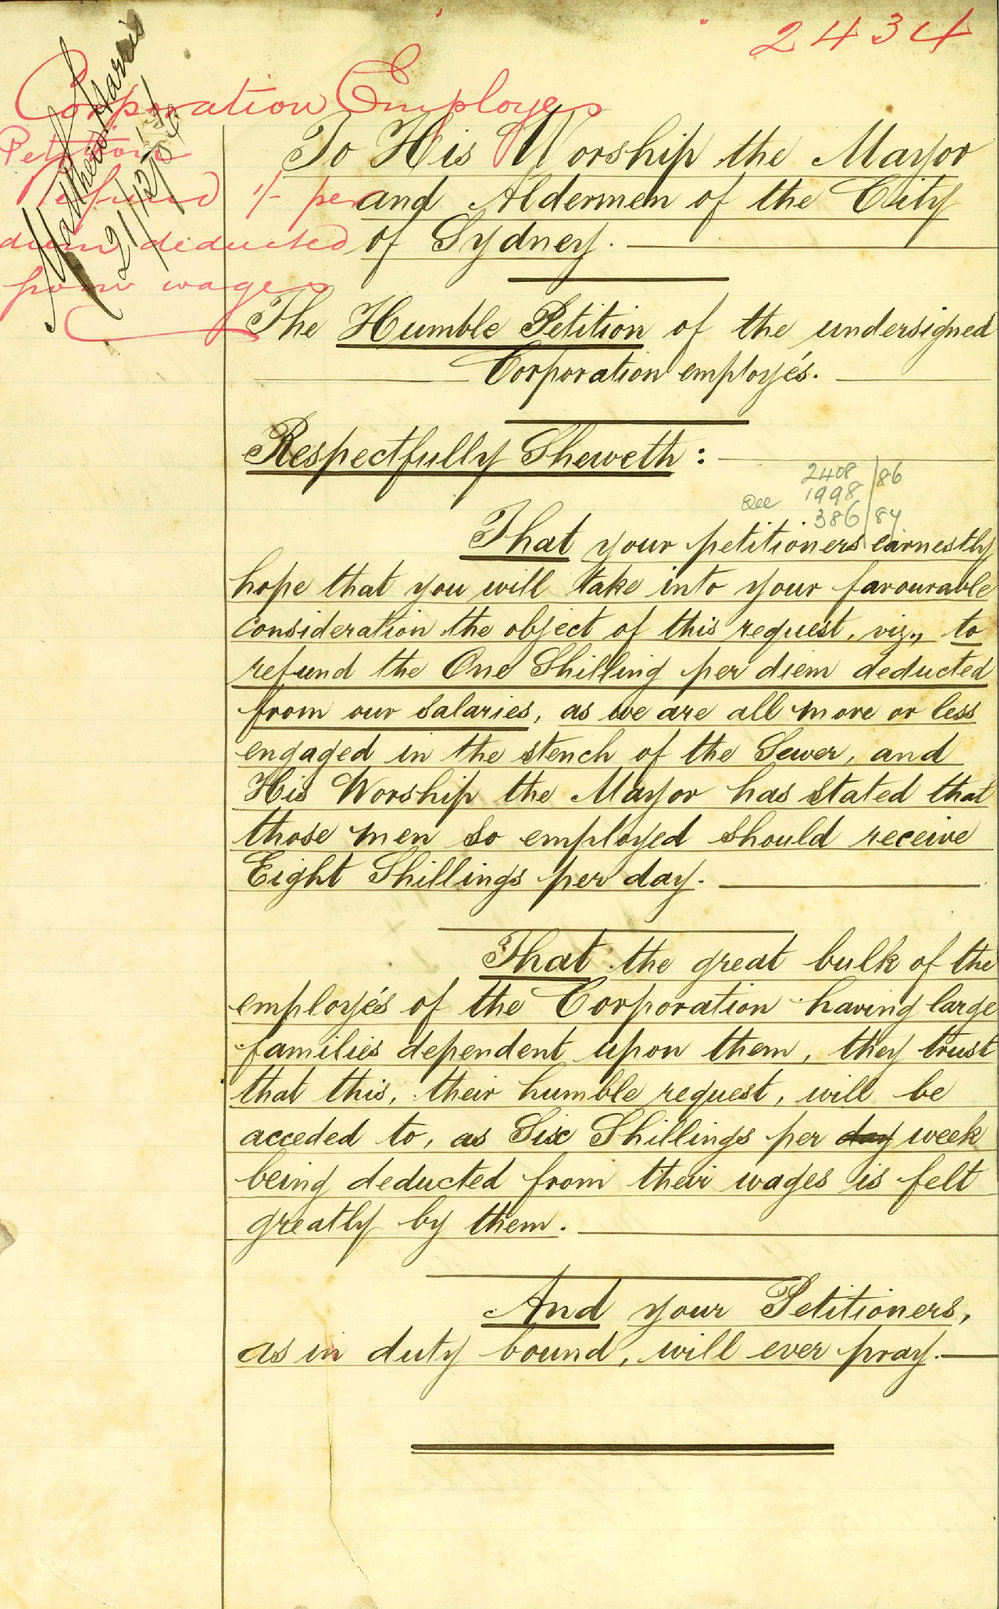 2434
Corporation Employes
Petition
Refund 1/- per
diem deducted
from wages
Matthew Harris
21/12/
To His Worship the Mayor
and Aldermen of the City
of Sydney.
The Humble Petition of the undersigned
Corporation employés.
Respectfully Sheweth:
2408/86
See 1998
386/84
That your petitioners earnestly
hope that you will take into your favourable
consideration the object of this request, viz., to
refund the One Shilling per diem deducted
from our salaries, as we are all more or less
engaged in the stench of the Sewer, and
His Worship the Mayor has stated that
those men so employed should receive
Eight Shillings per day.
That the great bulk of the
employés of the Corporation having large
families dependent upon them, they trust
that this, their humble request, will be
acceded to, as Six Shillings per day week
being deducted from their wages is felt
greatly by them.
And your Petitioners,
as in duty bound, will ever pray.